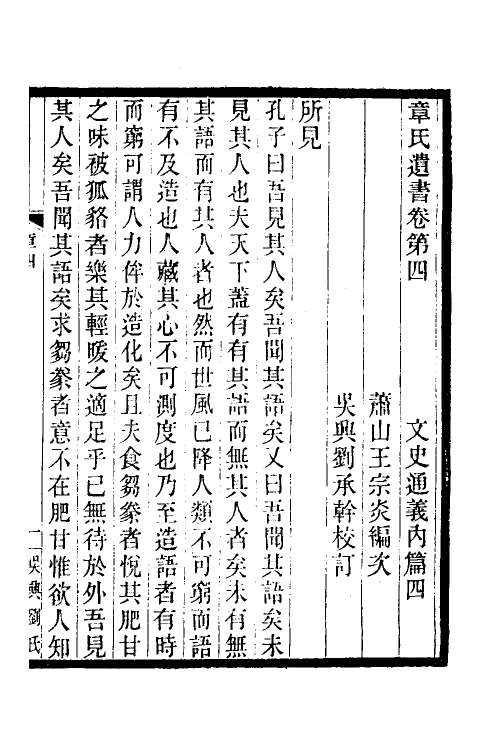 章氏遺書卷第四　文史通義內篇四
蕭山王宗炎編次
吳興劉承幹校訂
所見
孔子曰吾見其人矣吾聞其語矣又曰吾聞其語矣未
見其人也夫天下蓋有有其語而無其人者矣未有無
其語而有其人者也然而世風已降人類不可窮而語
有不及造也人藏其心不可測度也乃至造語者有時
而窮可謂人力侔於造化矣且夫食芻豢者悅其肥甘
之味被狐貉者樂其輕暖之適足乎已無待於外吾見
其人矣吾聞其語矣求芻豢者意不在肥甘惟欲人知
章四　一　吳興劉氏